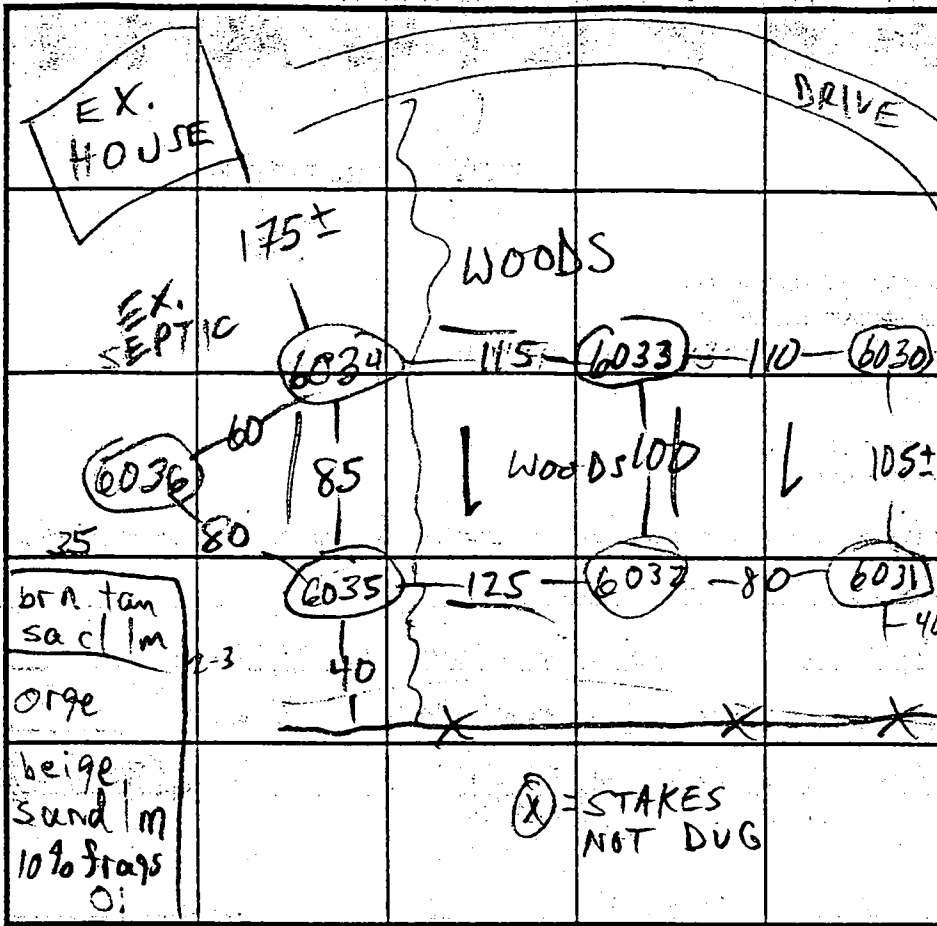 EX.
HOUSE
DRIVE
175±
WOODS
EX.
SEPTIC
6034
115
6033
110
6030
60
6036
85
WOODS
100
105±
35
80
6035
125
6032
80
6031
40
brn. tan
sa cl lm
2-3
40
orge
beige
sand lm
10% frags
X = STAKES
NOT DUG